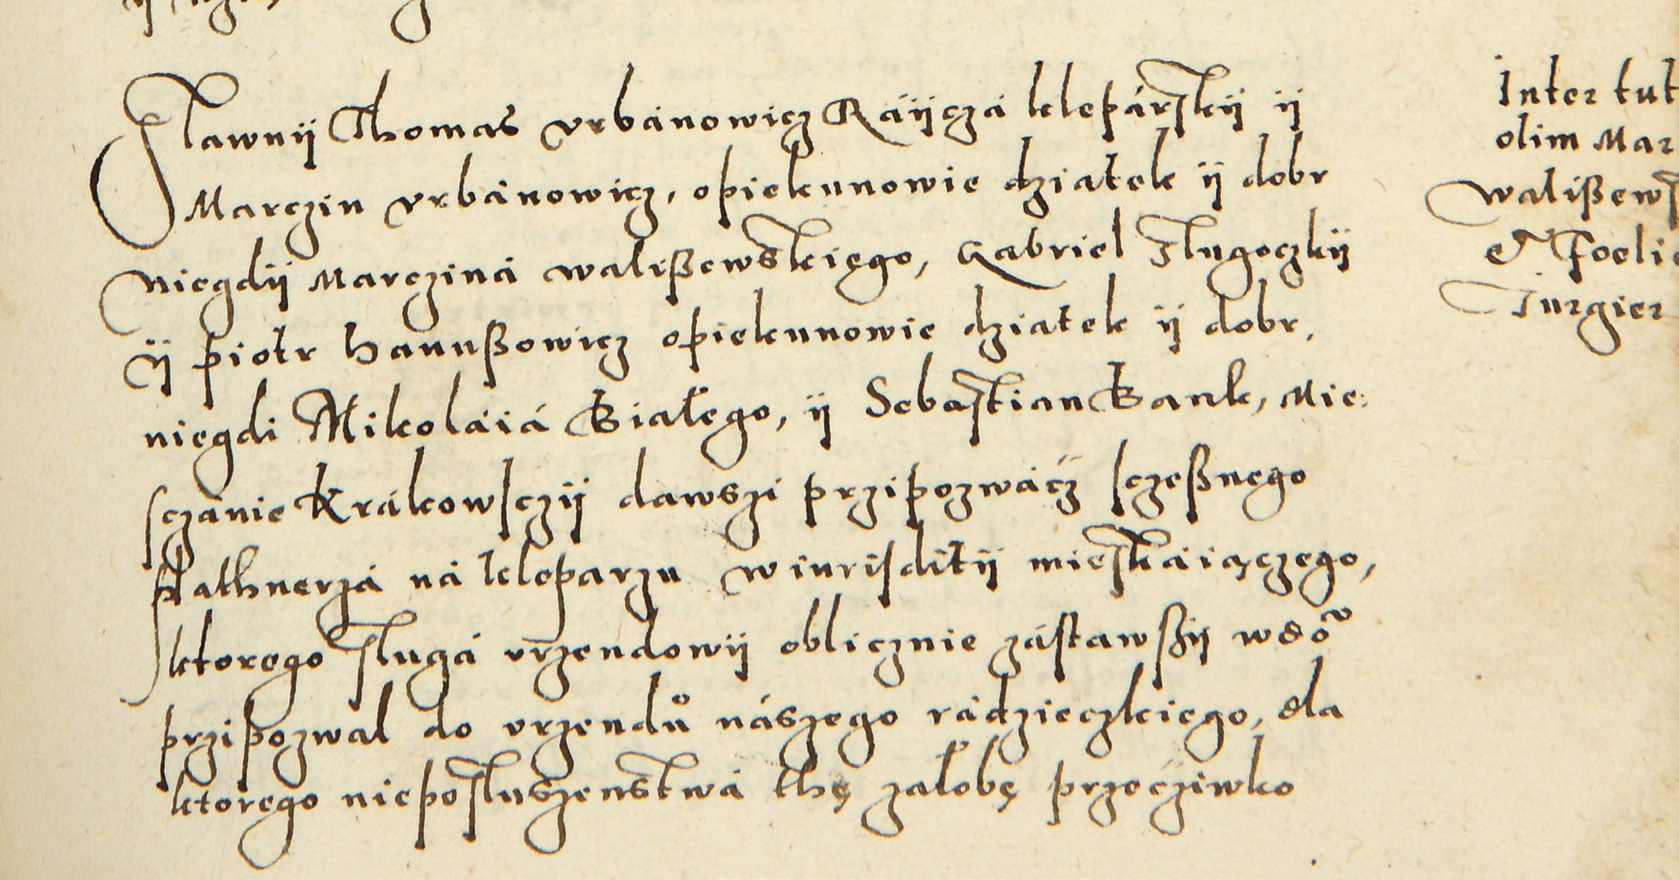 Slawnÿ Thomas vrbánowicz Ráÿczá klepárskÿ ÿ
Marczin vrbánowicz, opiekunowie dziatek ÿ dobr
niegdÿ Marcziná walißewskiego, Gabriel Slugoczkÿ
ÿ piotr hanußowicz opiekunowie dziatek ÿ dobr,
niegdi Mikoláiá Białego, ÿ Sebastian Bank, Mie:
sczánie Krákowsczÿ dawszi przipozwáćz sczeßnego
płathnerzá ná kleparzu w iurisditÿ mieskáiączego,
ktorego slugá vrzendowÿ oblicznie zástawßÿ
przipozwal do vrzendů nászego rádzieczkiego, dla
ktorego nieposluszenstwá thę załobę przeciwko
Inter tut
olim Mar
walißews
et Foelic
Turgier